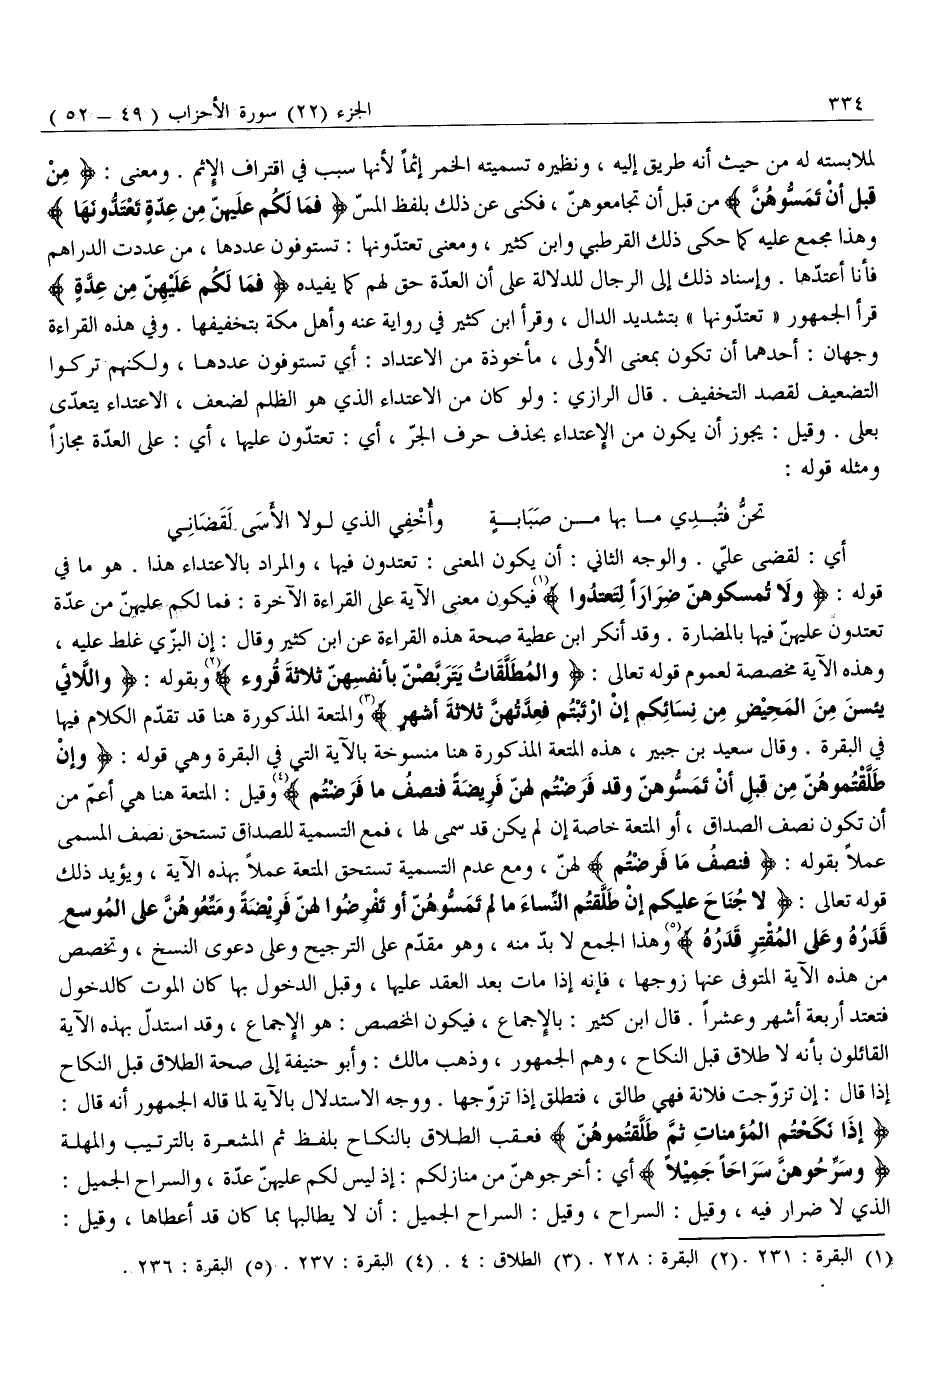 ٣٣٤
الجزء (٢٢) سورة الأحزاب ( ٤٩ - ٥٢ )
لملابسته له من حيث أنه طريق إليه ، ونظيره تسميته الخمر إثماً لأنها سبب في اقتراف الإثم . ومعنى : ﴿ مِنْ
قبل أنْ تَمَسُّوهُنَّ ﴾ من قبل أن تجامعوهنّ ، فكنى عن ذلك بلفظ المسّ ﴿ فمَا لَكُم علَيهنّ مِن عِدّةٍ تَعْتَدُّونَهَا ﴾
وهذا مجمع عليه كما حكى ذلك القرطبي وابن كثير ، ومعنى تعتدّونها : تستوفون عددها ، من عددت الدراهم
فأنا أعتدّها . وإسناد ذلك إلى الرجال للدلالة على أن العدّة حق لهم كما يفيده ﴿ فمَا لَكُم عَلَيْهنّ مِن عِدَّةٍ ﴾
قرأ الجمهور « تعتدّونها » بتشديد الدال ، وقرأ ابن كثير في رواية عنه وأهل مكة بتخفيفها . وفي هذه القراءة
وجهان : أحدهما أن تكون بمعنى الأولى ، مأخوذة من الاعتداد : أي تستوفون عددهـا ، ولـكنهم تركـوا
التضعيف لقصد التخفيف . قال الرازي : ولو كان من الاعتداء الذي هو الظلم لضعف ، الاعتداء يتعدّى
بعلى . وقيل : يجوز أن يكون من الإعتداء بحذف حرف الجرّ ، أي : تعتدّون عليها ، أي : على العدّة مجازاً
ومثله قوله :
تحنُّ فتُبـدِي مـا بها مـن صَبَابـةٍ وأُخْفِي الذي لـولا الأَسَى لَقَضَانِـي
أي : لقضى عليّ . والوجه الثاني : أن يكون المعنى : تعتدون فيها ، والمراد بالاعتداء هذا . هو ما في
قوله : ﴿ ولَا تُمسكوهنّ ضِرَارَاً لِتَعتدُوا ﴾(١) فيكون معنى الآية على القراءة الآخرة : فما لكم عليهنّ من عدّة
تعتدون عليهنّ فيها بالمضارة . وقد أنكر ابن عطية صحة هذه القراءة عن ابن كثير وقال : إن البزّي غلط عليه ،
وهذه الآية مخصصة لعموم قوله تعالى : ﴿ والمُطلَّقَاتُ يَتَربَّصْنّ بأنفسِهنّ ثلاثةَ قُروء ﴾(٢) وبقوله : ﴿ واللَّائي
يئسنَ مِنَ المَحيْضِ مِن نِسَائِكم إنْ ارْتَبْتُم فعِدَّتُهنَّ ثلاثةَ أشهرٍ ﴾(٣) والمتعة المذكورة هنا قد تقدّم الكلام فيها
في البقرة . وقال سعيد بن جبير ، هذه المتعة المذكورة هنا منسوخة بالآية التي في البقرة وهي قوله : ﴿ وإنْ
طَلَّقْتُموهُنّ مِن قبلِ أنْ تَمَسُّوهنّ وقد فَرَضْتُم لهنّ فَرِيضَةً فنصفُ ما فَرَضْتُم ﴾(٤) وقيل : المتعة هنا هي أعمّ من
أن تكون نصف الصداق ، أو المتعة خاصة إن لم يكن قد سمى لها ، فمع التسمية للصداق تستحق نصف المسمى
عملاً بقوله : ﴿ فنصفُ مَا فَرضْتُم ﴾ لهنّ ، ومع عدم التسمية تستحق المتعة عملاً بهذه الآية ، ويؤيد ذلك
قوله تعالى : ﴿ لا جُنَاحَ عليكم إنْ طلَّقتُم النِّساءَ ما لم تَمَسُّوهُنّ أو تَفْرِضُوا لهنّ فَرِيْضَةً ومَتِّعُوهُنَّ على المُوسعِ
قَدَرُهُ وعَلَى المُقْتِرِ قَدَرُهُ ﴾(٥) وهذا الجمع لا بدّ منه ، وهو مقدّم على الترجيح وعلى دعوى النسخ ، وتخصص
من هذه الآية المتوفى عنها زوجها ، فإنه إذا مات بعد العقد عليها ، وقبل الدخول بها كان الموت كالدخول
فتعتد أربعة أشهر وعشراً . قال ابن كثير : بالإجماع ، فيكون المخصص : هو الإجماع ، وقد استدلّ بهذه الآية
القائلون بأنه لا طلاق قبل النكاح ، وهم الجمهور ، وذهب مالك : وأبو حنيفة إلى صحة الطلاق قبل النكاح
إذا قال : إن تزوّجت فلانة فهي طالق ، فتطلق إذا تزوّجها . ووجه الاستدلال بالآية لما قاله الجمهور أنه قال :
﴿ إذَا نَكَحْتُم المُؤمناتِ ثمَّ طَلَّقتُموهُنّ ﴾ فعقب الطلاق بالنكاح بلفظ ثم المشعرة بالترتيب والمهلة
﴿ وسَرِّحُوهنَّ سَرَاحَاً جَمِيْلاً ﴾ أي : أخرجوهنّ من منازلكم : إذ ليس لكم عليهنّ عدّة ، والسراح الجميل :
الذي لا ضرار فيه ، وقيل : السراح ، وقيل : السراح الجميل : أن لا يطالبها بما كان قد أعطاها ، وقيل :
(١) البقرة : ٢٣١ . (٢) البقرة : ٢٢٨ . (٣) الطلاق : ٤ . (٤) البقرة : ٢٣٧ . (٥) البقرة : ٢٣٦ .